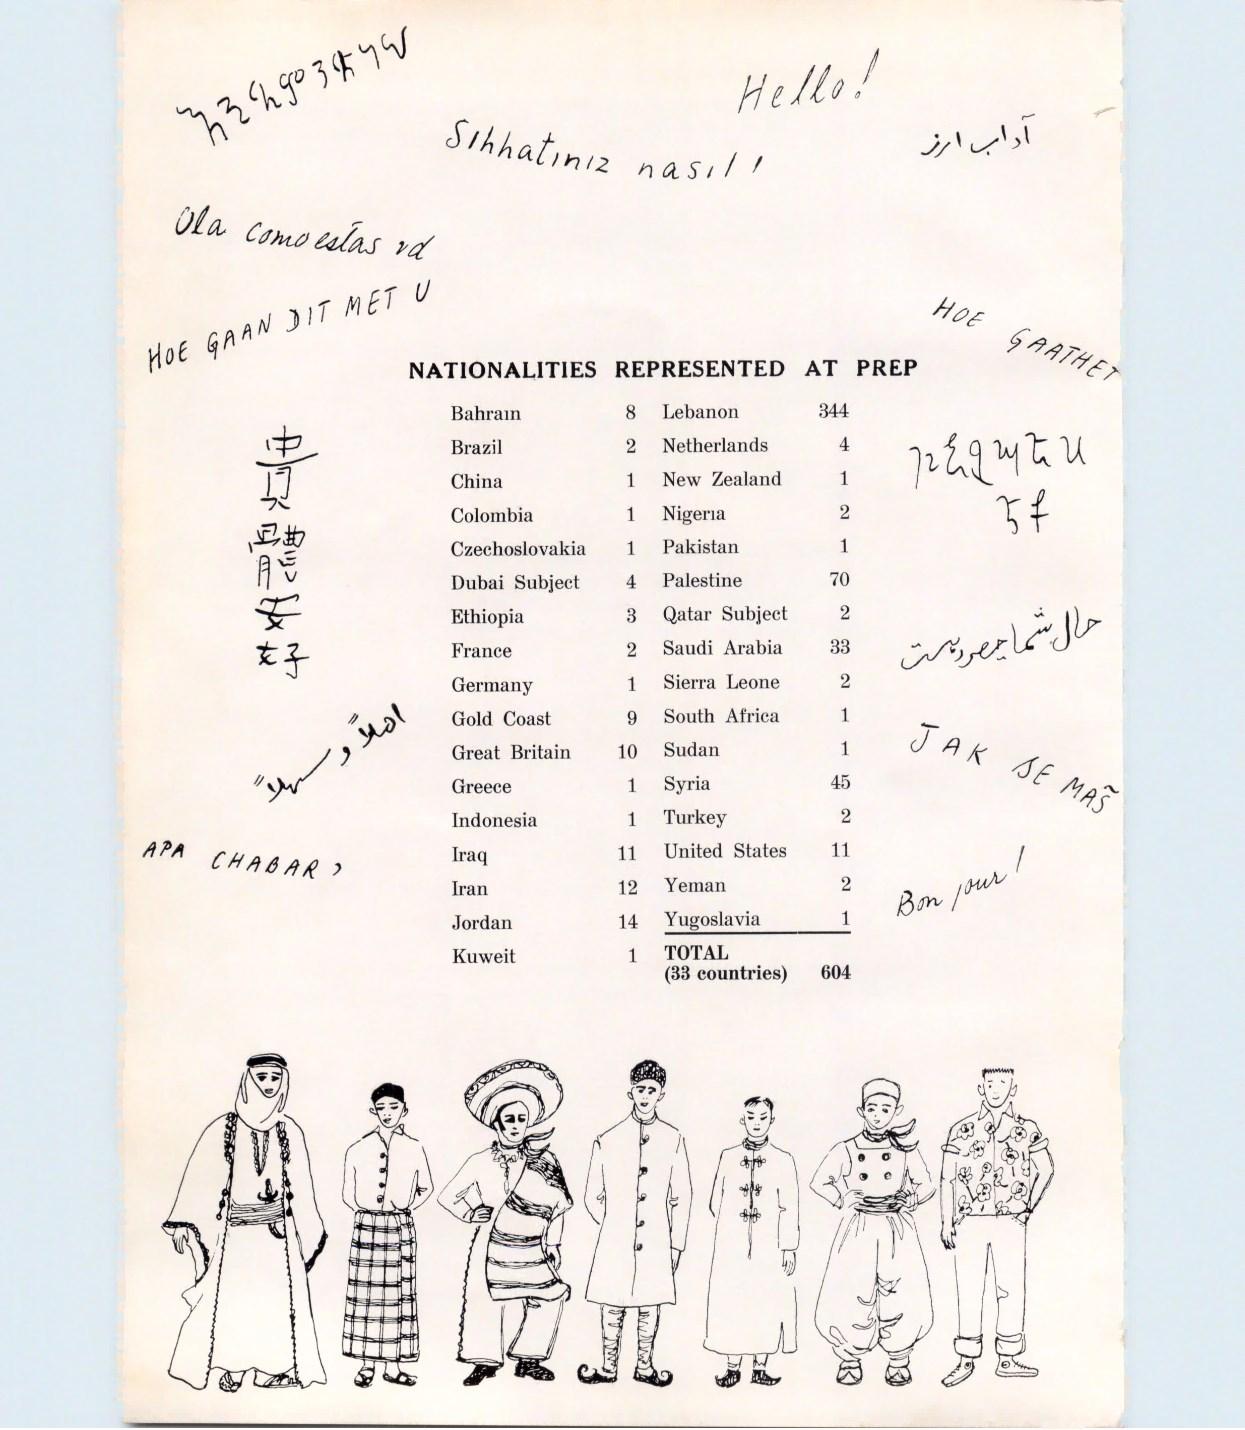 Hello!
Sıhhatınız nasıl!
آداب ارز
Ola como estas vd
HOE GAAN DIT MET U
HOE GAATHET
NATIONALITIES REPRESENTED AT PREP
Bahrain 8 Lebanon 344
Brazil 2 Netherlands 4
China 1 New Zealand 1
Colombia 1 Nigeria 2
Czechoslovakia 1 Pakistan 1
Dubai Subject 4 Palestine 70
Ethiopia 3 Qatar Subject 2
France 2 Saudi Arabia 33
Germany 1 Sierra Leone 2
Gold Coast 9 South Africa 1
Great Britain 10 Sudan 1
Greece 1 Syria 45
Indonesia 1 Turkey 2
Iraq 11 United States 11
Iran 12 Yeman 2
Jordan 14 Yugoslavia 1
Kuweit 1 TOTAL
(33 countries) 604
貴
體
安
好
حال شما
اهلاً و سهلاً
JAK SE MAŠ
APA CHABAR,
Bon jour!